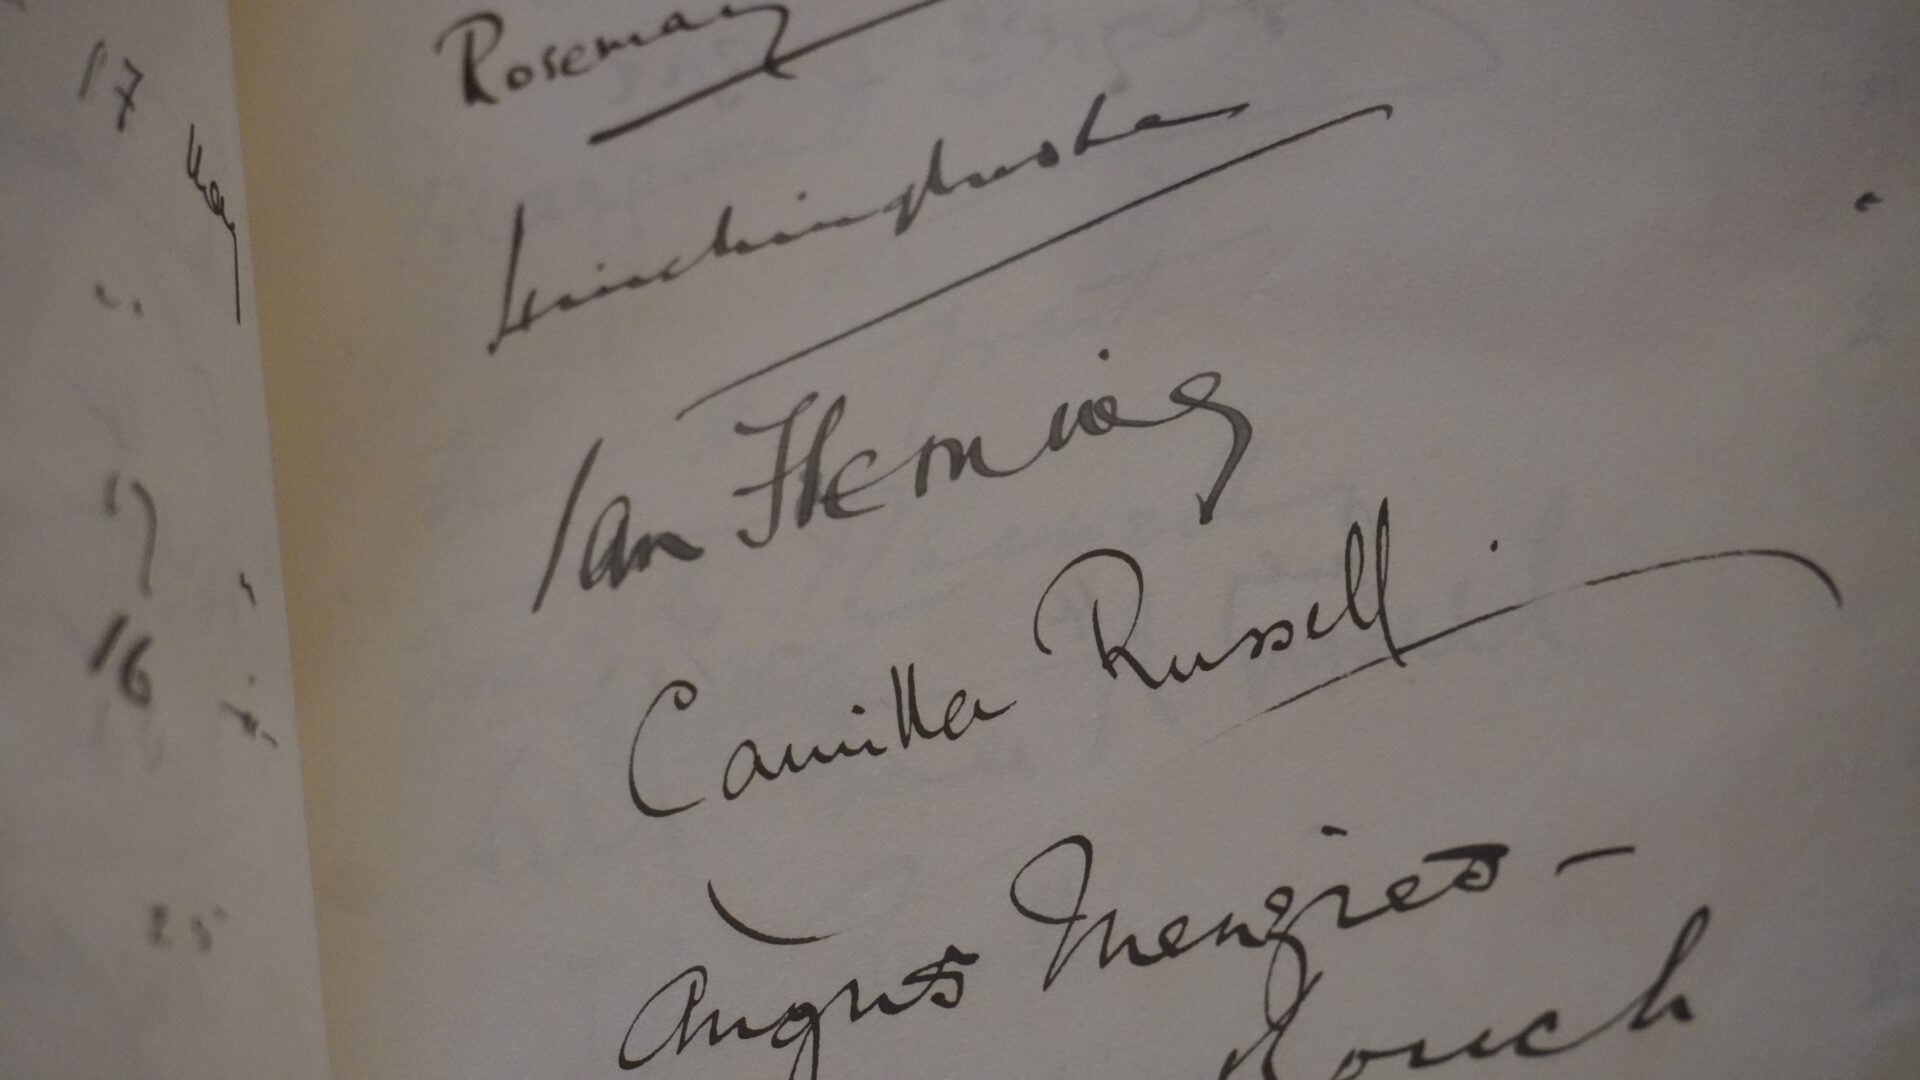 Rosemary
17 May
Hinchingbrooke
Ian Fleming
17
16
Camilla Russell
25
Angus Menzies -